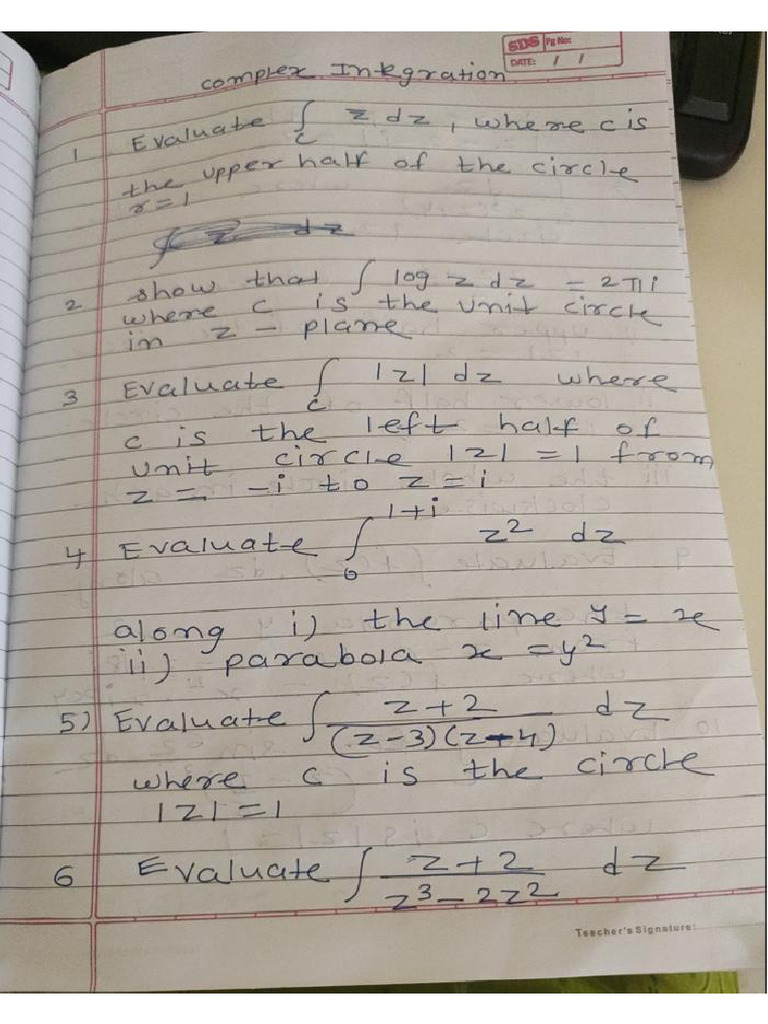 SDS Pg No:
DATE: / /
complex Integration
1 Evaluate ∫c z dz, where c is
the upper half of the circle
r=1
2 show that ∫ log z dz = 2πi
where c is the unit circle
in z - plane
3 Evaluate ∫c |z| dz where
c is the left half of
unit circle |z| = 1 from
z = -i to z = i
4 Evaluate ∫₀¹⁺ⁱ z² dz
along i) the line y = x
ii) parabola x = y²
5) Evaluate ∫ z+2 / (z-3)(z-4) dz
where c is the circle
|z| = 1
6 Evaluate ∫ z+2 / z³-2z² dz
Teacher's Signature: